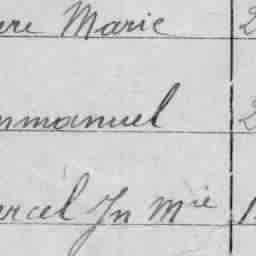 rre Marie 2
mmanuel 2
arcel Jn Mie 1